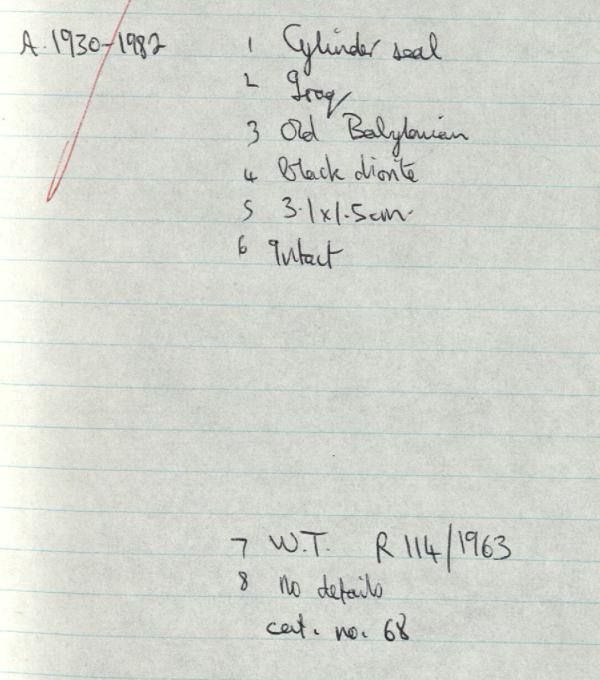 A. 1930-1982
1 Cylinder seal
2 Iraq
3 Old Babylonian
4 Black diorite
5 3.1x1.5cm.
6 Intact
7 W.T. R 114/1963
8 No details
cat. no. 68